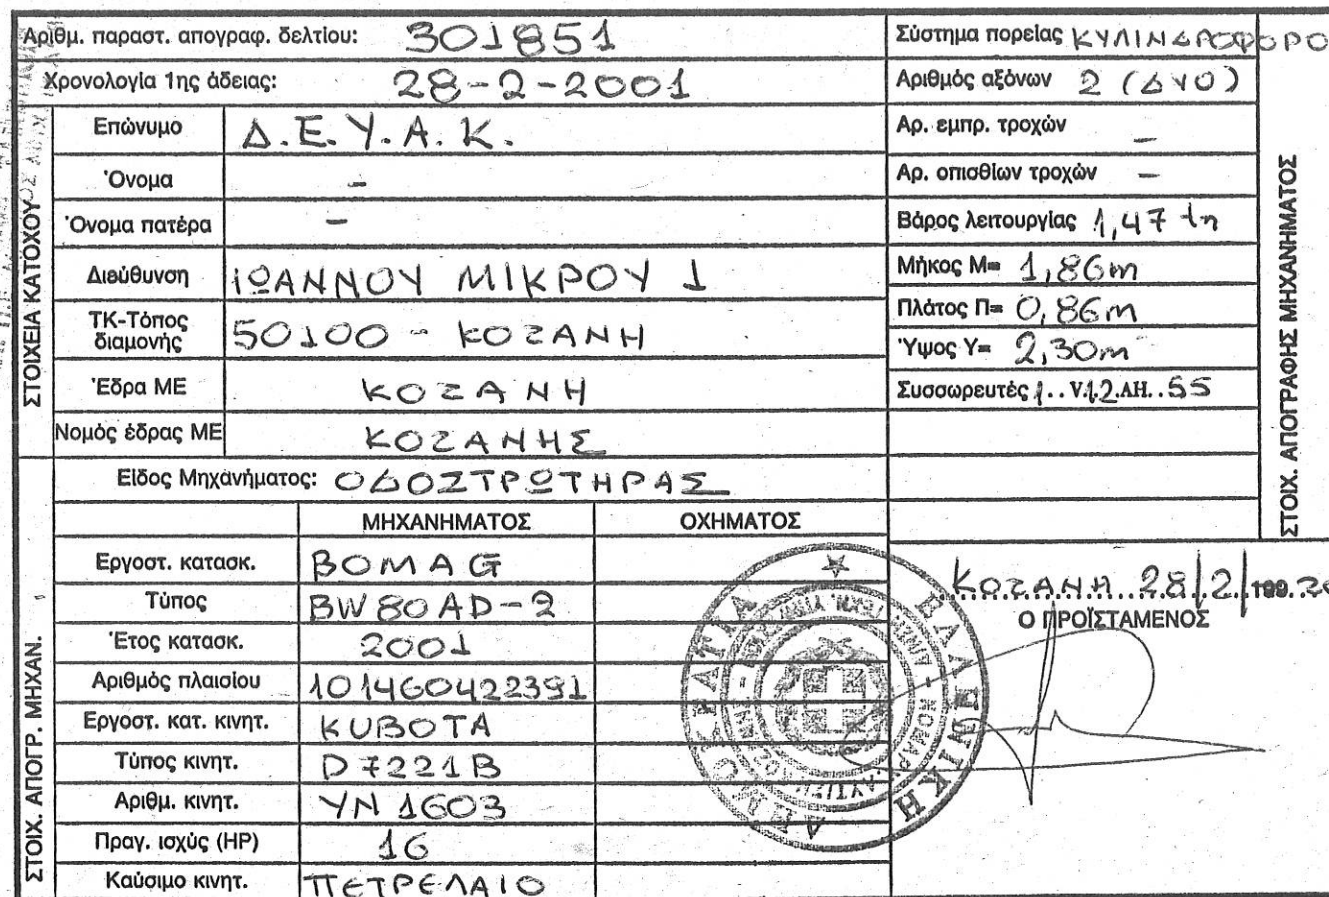 Αριθμ. παραστ. απογραφ. δελτίου: 301851
Χρονολογία 1ης άδειας: 28-2-2001
ΣΤΟΙΧΕΙΑ ΚΑΤΟΧΟΥ
Επώνυμο Δ.Ε.Υ.Α.Κ.
Όνομα -
Όνομα πατέρα -
Διεύθυνση ΙΩΑΝΝΟΥ ΜΙΚΡΟΥ 1
ΤΚ-Τόπος διαμονής 50100 - ΚΟΖΑΝΗ
Έδρα ΜΕ ΚΟΖΑΝΗ
Νομός έδρας ΜΕ ΚΟΖΑΝΗΣ
ΣΤΟΙΧ. ΑΠΟΓΡ. ΜΗΧΑΝ.
Είδος Μηχανήματος: ΟΔΟΣΤΡΩΤΗΡΑΣ
ΜΗΧΑΝΗΜΑΤΟΣ ΟΧΗΜΑΤΟΣ
Εργοστ. κατασκ. BOMAG
Τύπος BW 80 AD-2
Έτος κατασκ. 2001
Αριθμός πλαισίου 101460422391
Εργοστ. κατ. κινητ. KUBOTA
Τύπος κινητ. D7221B
Αριθμ. κινητ. YN 1603
Πραγ. ισχύς (HP) 16
Καύσιμο κινητ. ΠΕΤΡΕΛΑΙΟ
Σύστημα πορείας ΚΥΛΙΝΔΡΟΦΟΡΟ
Αριθμός αξόνων 2 (ΔΥΟ)
Αρ. εμπρ. τροχών -
Αρ. οπισθίων τροχών -
Βάρος λειτουργίας 1,47 tn
Μήκος Μ= 1,86m
Πλάτος Π= 0,86m
Ύψος Υ= 2,30m
Συσσωρευτές 1..V.12.AH..55
ΣΤΟΙΧ. ΑΠΟΓΡΑΦΗΣ ΜΗΧΑΝΗΜΑΤΟΣ
ΚΟΖΑΝΗ..28/2/199.20
Ο ΠΡΟΪΣΤΑΜΕΝΟΣ
ΕΛΛΗΝΙΚΗ ΔΗΜΟΚΡΑΤΙΑ